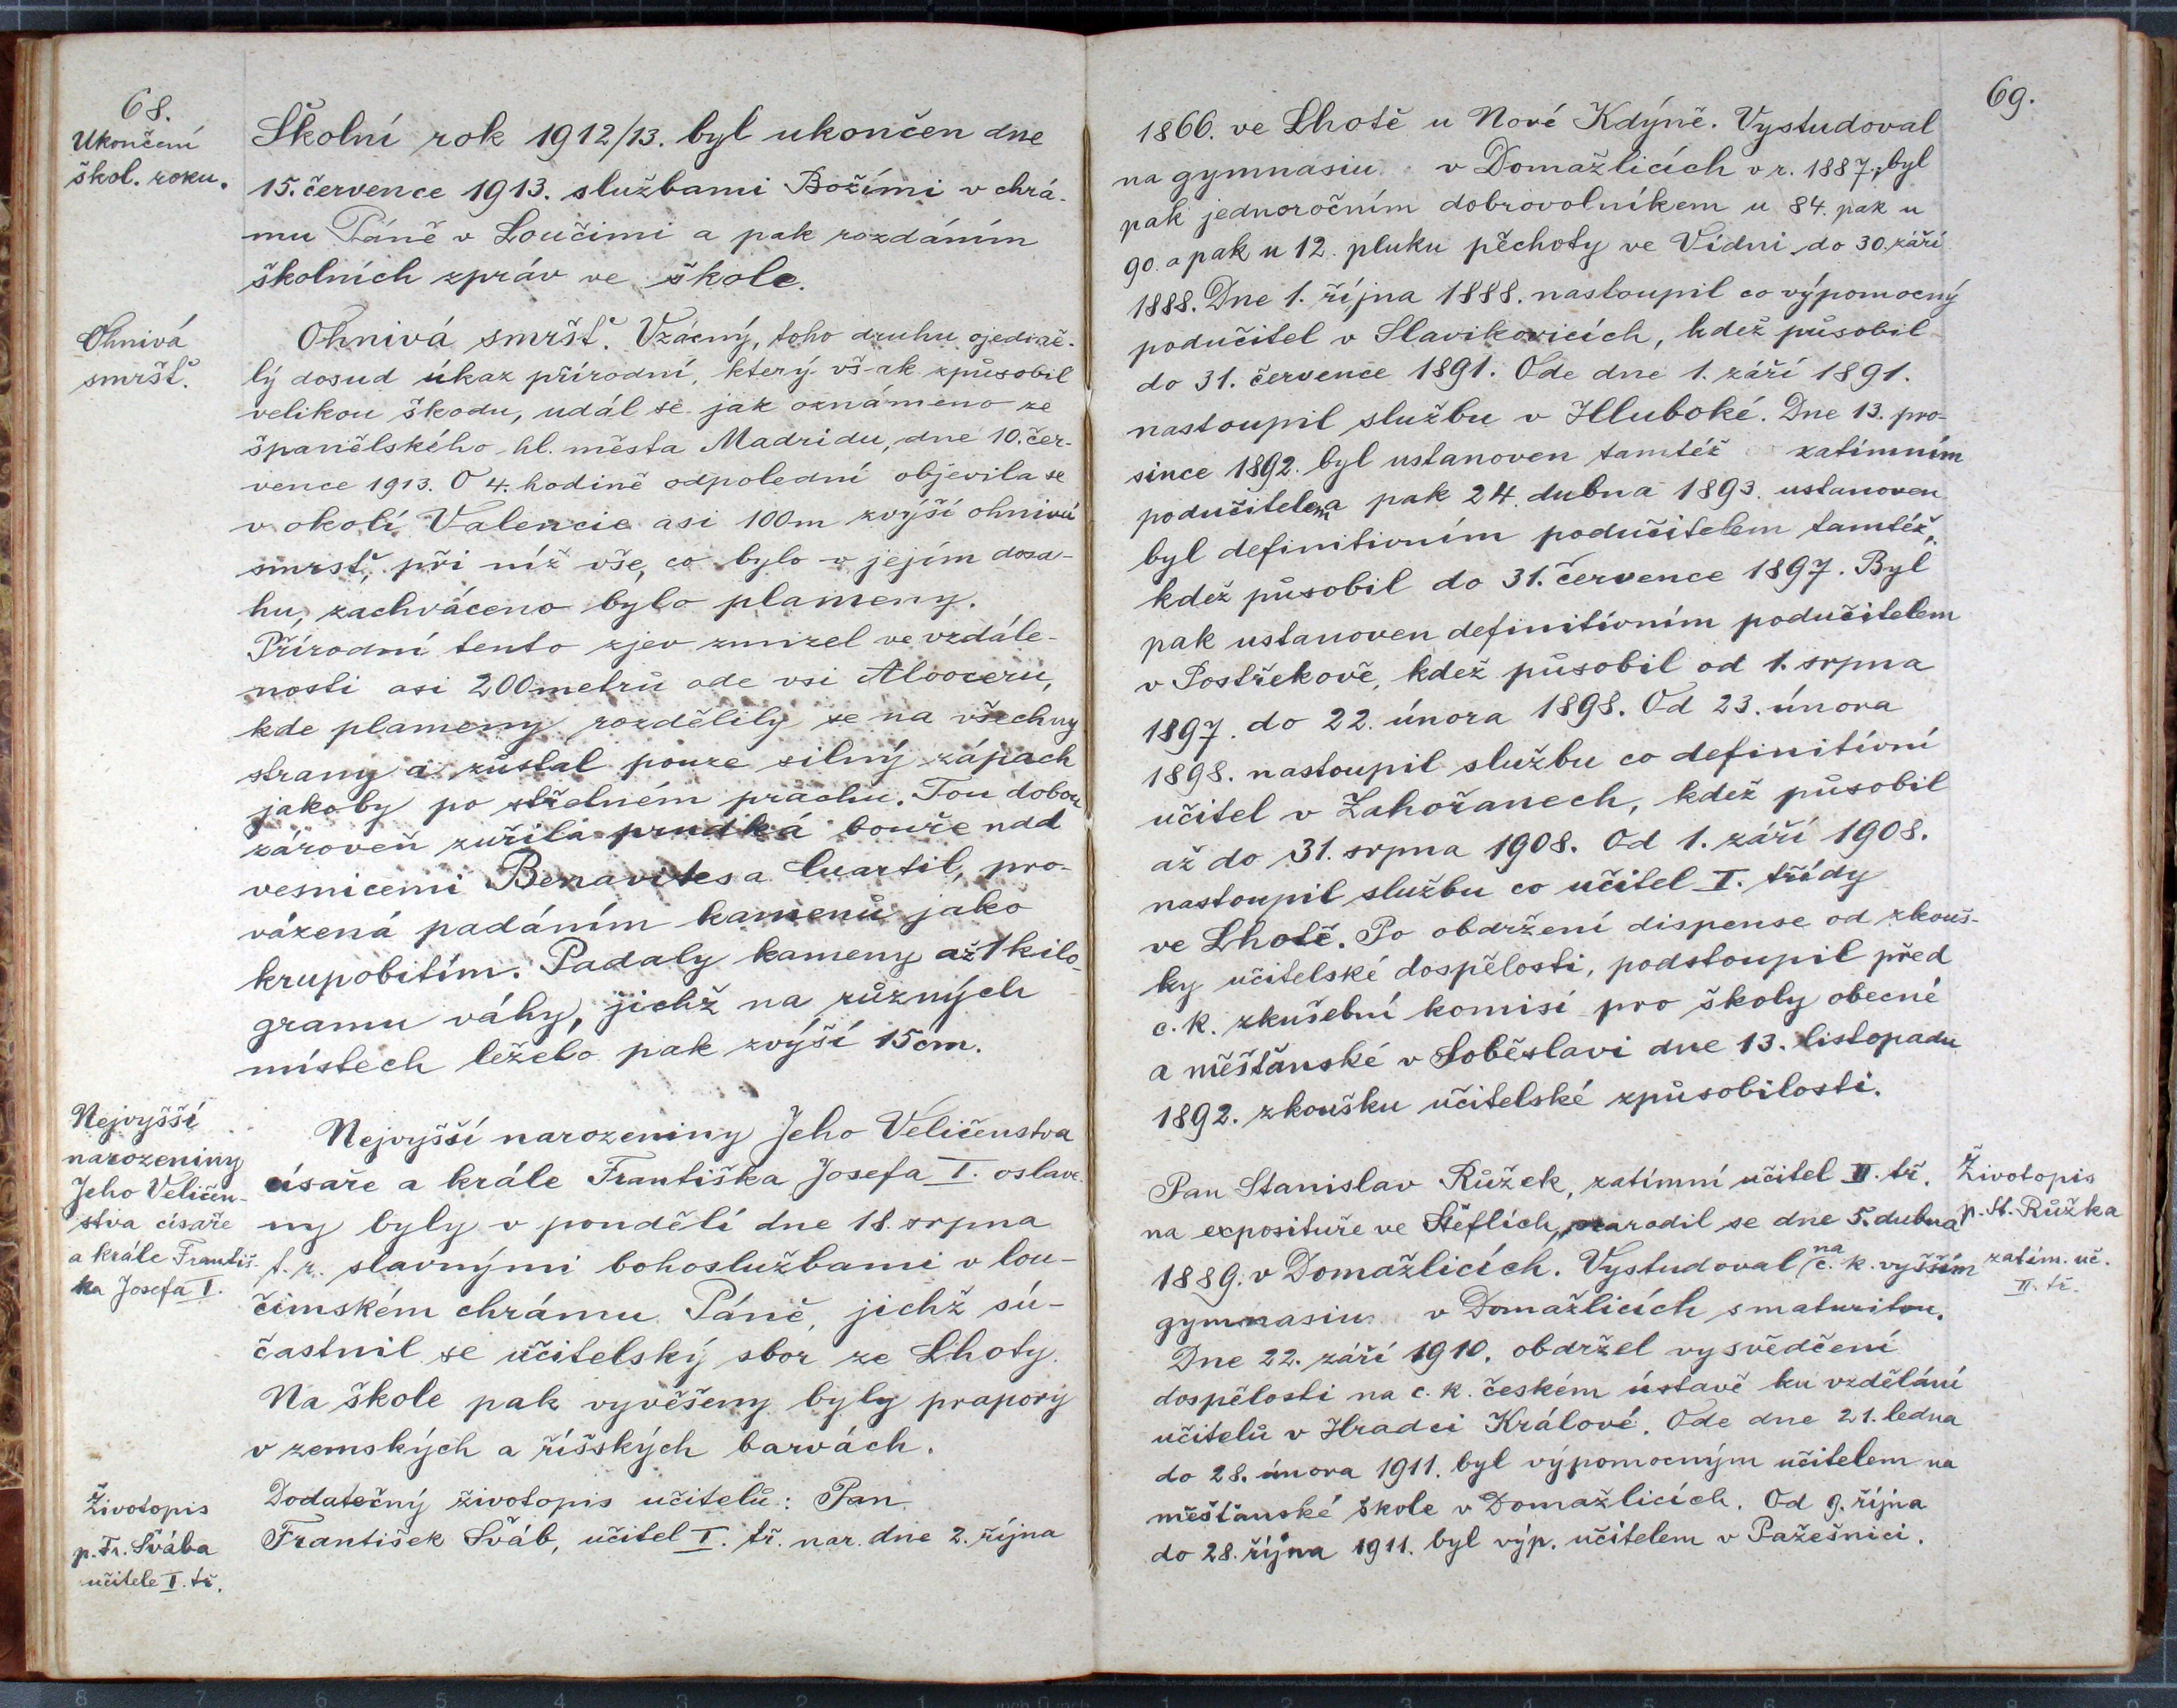 68.
Ukončení
škol. roku.
Školní rok 1912/13. byl ukončen dne
15. července 1913. službami Božími v chrá-
mu Páně v Loučimi a pak rozdáním
školních zpráv ve škole.
Ohnivá
smršť.
Ohnivá smršť. Vzácný, toho druhu ojedině-
lý dosud úkaz přírodní, který vš-ak způsobil
velikou škodu, udál se jak oznámeno ze
španělského hl. města Madridu, dne 10. čer-
vence 1913. O 4. hodině odpolední objevila se
v okolí Valencie asi 100m zvýší ohnivá
smršť, při níž vše, co bylo v jejím dosa-
hu, zachváceno bylo plameny.
Přírodní tento zjev zmizel ve vzdále-
nosti asi 200metrů ode vsi Alooceru,
kde plameny rozdělily se na všechny
strany a zůstal pouze silný zápach
jakoby po střelném prachu. Tou dobou
zároveň zuřila prudká bouře nad
vesnicemi Benavites a Cuartil, pro-
vázená padáním kamenů jako
krupobitím. Padaly kameny až 1 kilo-
gramu váhy, jichž na různých
místech leželo pak zvýší 15cm.
Nejvyšší
narozeniny
Jeho Veličen-
stva císaře
a krále Františ-
ka Josefa I.
Nejvyšší narozeniny Jeho Veličenstva
císaře a krále Františka Josefa I. oslave-
ny byly v pondělí dne 18. srpna
t. r. slavnými bohoslužbami v lou-
čimském chrámu Páně, jichž sú-
častnil se učitelský sbor ze Lhoty.
Na škole pak vyvěšeny byly prapory
v zemských a říšských barvách.
Životopis
p. Fr. Švába
učitele I. tř.
Dodatečný životopis učitelů: Pan
František Šváb, učitel I. tř. nar. dne 2. října
69.
1866. ve Lhotě u Nové Kdýně. Vystudoval
na gymnasiu v Domažlicích v r. 1887., byl
pak jednoročním dobrovolníkem u 84. pak u
90. a pak u 12. pluku pěchoty ve Vídni do 30. září
1888. Dne 1. října 1888. nastoupil co výpomocný
podučitel v Slavikovicích, kdež působil
do 31. července 1891. Ode dne 1. září 1891.
nastoupil službu v Hluboké. Dne 13. pro-
since 1892. byl ustanoven tamtéž zatímním
podučitelem a pak 24. dubna 1893. ustanoven
byl definitivním podučitelem tamtéž,
kdež působil do 31. července 1897. Byl
pak ustanoven definitívním podučitelem
v Postřekově, kdež působil od 1. srpna
1897. do 22. února 1898. Od 23. února
1898. nastoupil službu co definitívní
učitel v Zahořanech, kdež působil
až do 31. srpna 1908. Od 1. září 1908.
nastoupil službu co učitel I. třídy
ve Lhotě. Po obdržení dispense od zkouš-
ky učitelské dospělosti, podstoupil před
c. k. zkušební komisí pro školy obecné
a měšťanské v Soběslavi dne 13. listopadu
1892. zkoušku učitelské způsobilosti.
Pan Stanislav Růžek, zatímní učitel II. tř.
na exposituře ve Štěflích, narodil se dne 5. dubna
1889. v Domažlicích. Vystudoval na c. k. vyšším
gymnasiu v Domažlicích s maturitou.
Dne 22. září 1910. obdržel vysvědčení
dospělosti na c. k. českém ústavě ku vzdělání
učitelů v Hradci Králové. Ode dne 21. ledna
do 28. února 1911. byl výpomocným učitelem na
měšťanské škole v Domažlicích. Od 9. října
do 28. října 1911. byl výp. učitelem v Pažešnici.
Životopis
p. St. Růžka
zatím. uč.
II. tř.